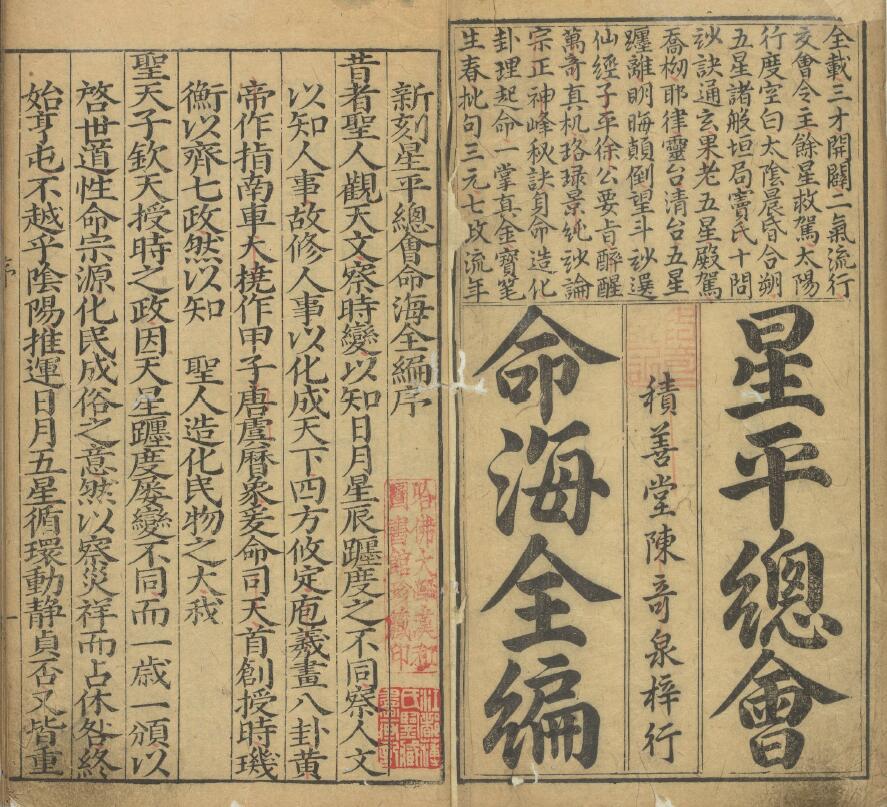 全載三才開闢二氣流行
交會令主餘星救駕太陽
行度空白太陰晨昏合朔
五星諸般垣局竇氏十問
玅訣通玄果老五星殿駕
喬拗耶律靈台清台五星
躔離明晦顛倒望斗玅選
仙經子平徐公要旨醉醒
萬奇真机珞琭景純玅論
宗正神峰秋訣身命造化
卦理起命一掌真金寶笔
生春批句三元七政流年
星平總會
積善堂陳奇泉梓行
命海全編
新刻星平總會命海全編序
昔者聖人觀天文察時變以知日月星辰躔度之不同察人文
以知人事故修人事以化成天下四方攸定庖羲畫八卦黃
帝作指南車大撓作甲子唐虞曆象爰命司天首創授時璣
衡以齊七政然以知 聖人造化民物之大哉
聖天子欽天授時之政因天星躔度屡變不同而一歲一頒以
啓世道性命宗源化民成俗之意然以察災祥而占休咎終
始亨屯不越乎陰陽推運日月五星循環動靜貞否又皆重
序
一
哈佛大學漢和
圖書館珍藏印